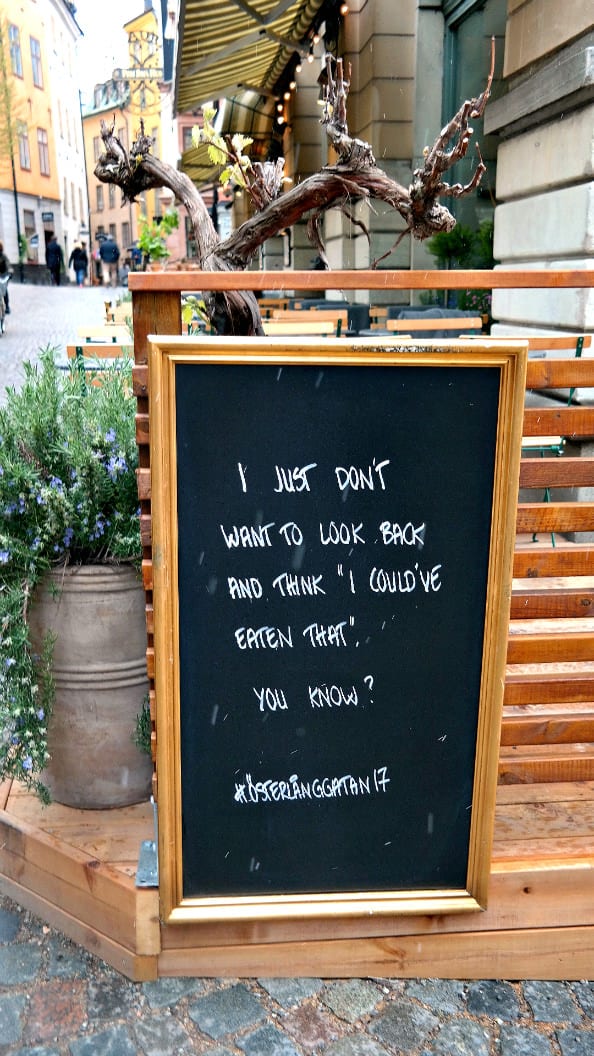 I JUST DON'T
WANT TO LOOK BACK
AND THINK "I COULD'VE
EATEN THAT".
YOU KNOW?
#ÖSTERLÅNGGATAN17